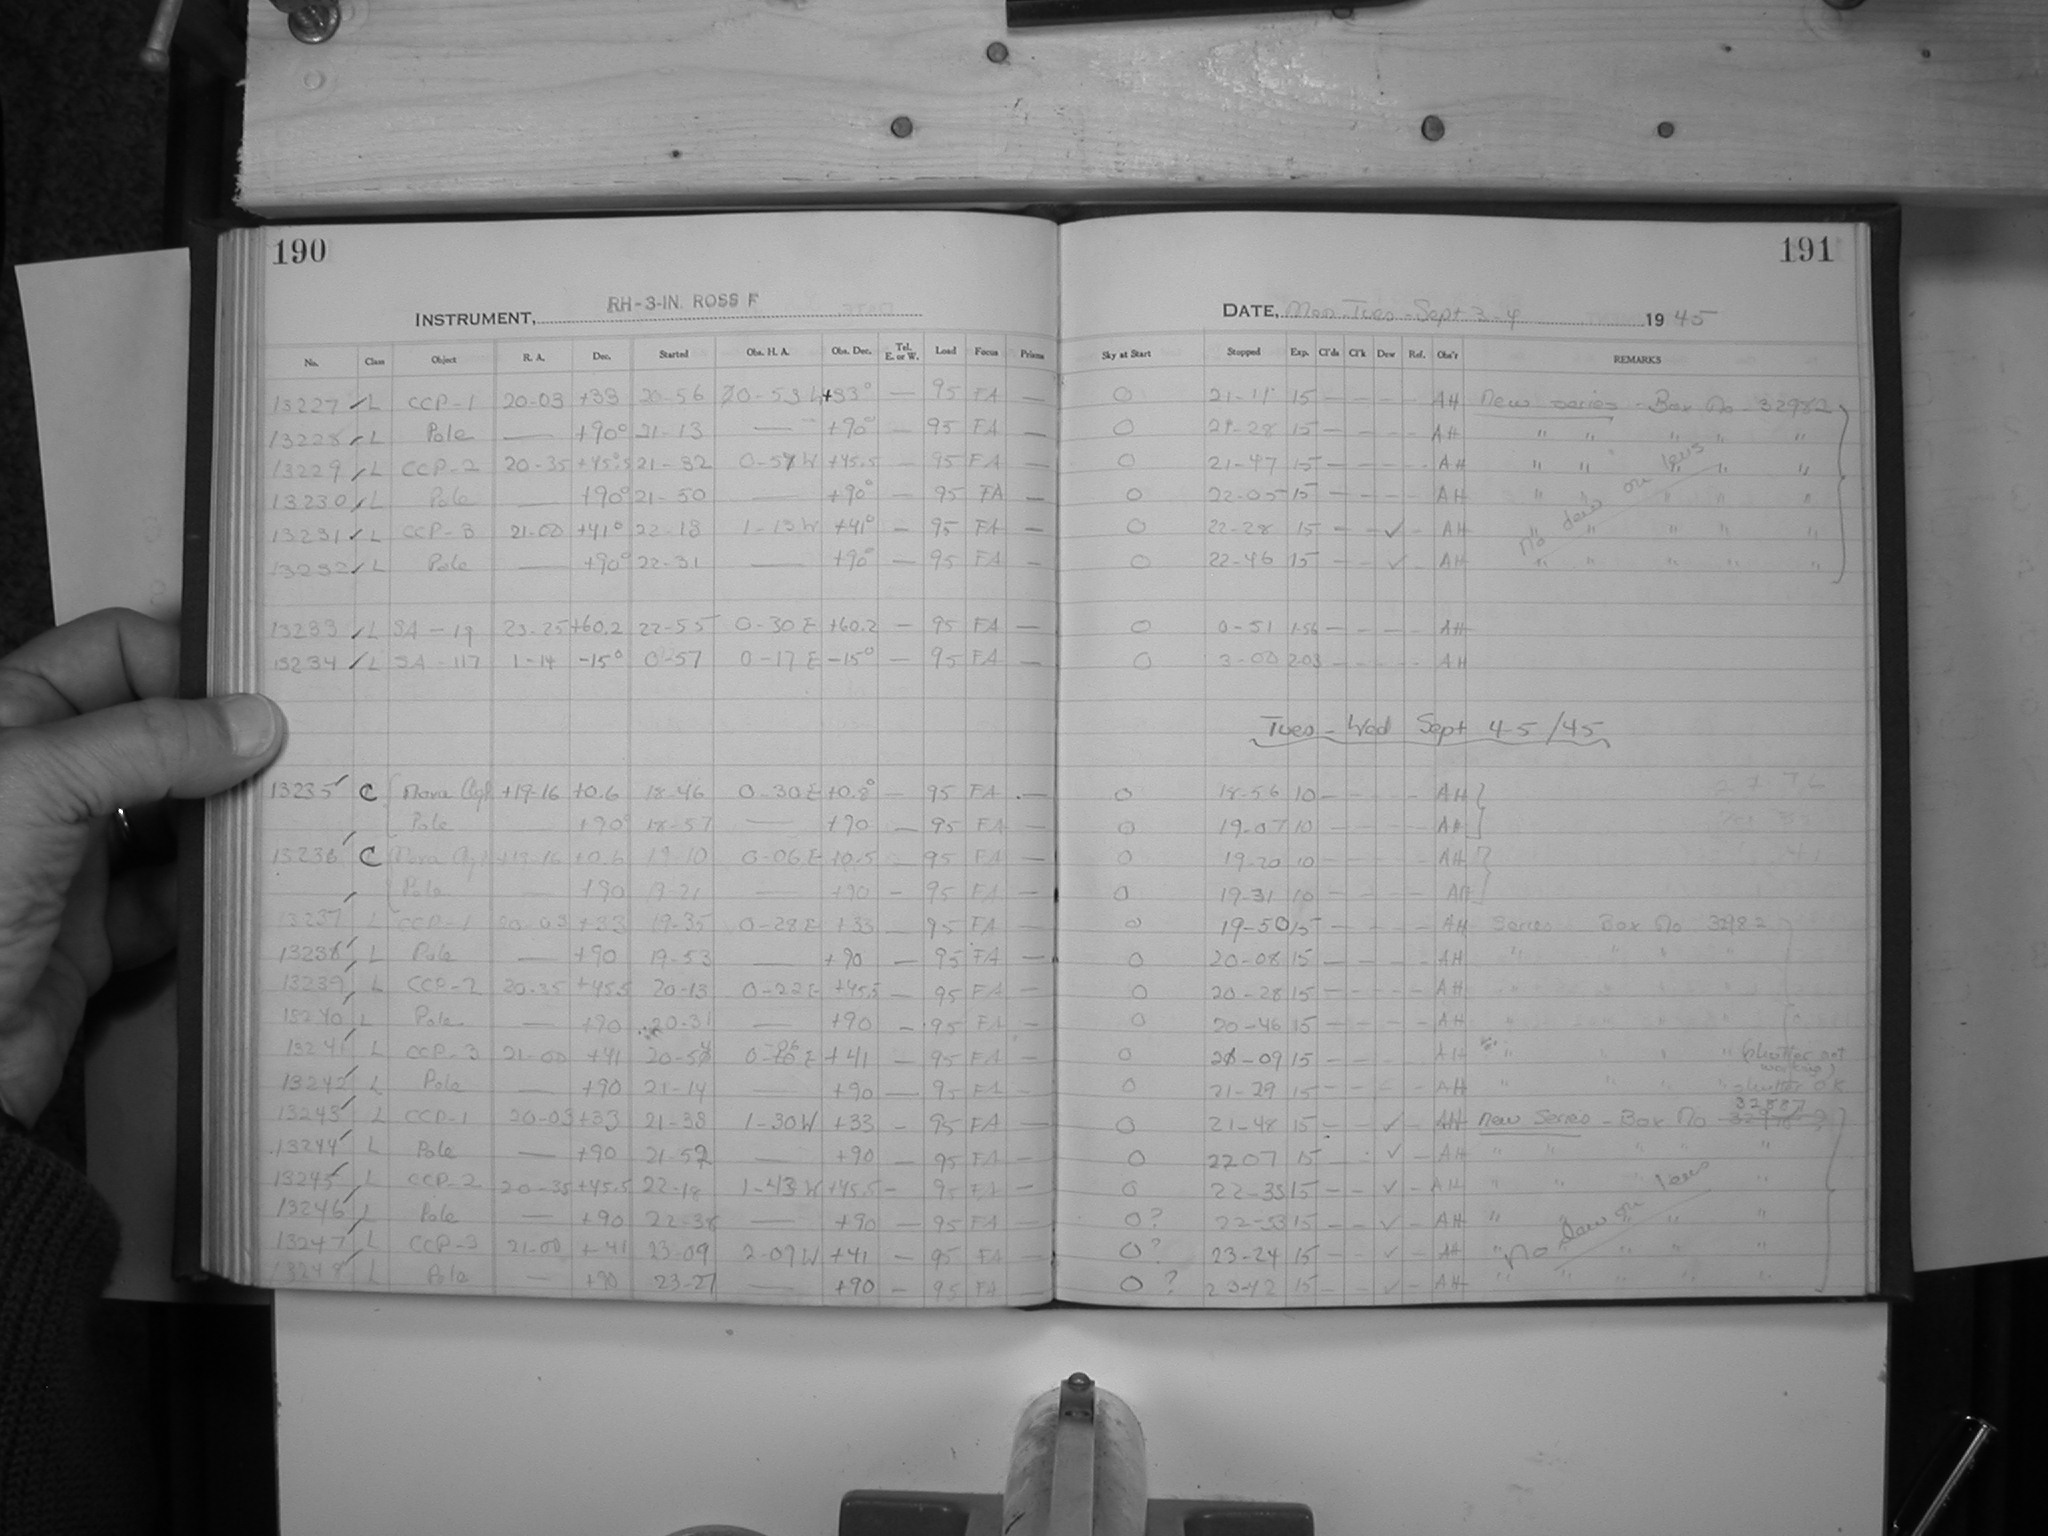 190
191
INSTRUMENT, RH-3-IN. ROSS F
DATE, Mon-Tues - Sept 3-4 1945
No. Class Object R. A. Dec. Started Obs. H. A. Obs. Dec. Tel. E. or W. Load Focus Prisms Sky at Start Stopped Exp. Cl'ds Cl'k Dew Ref. Obs'r REMARKS
13227 ✓ L CCP-1 20-03 +33 20-56 0-53 W +33° — 95 FA — O 21-11 15 - - - - AH New series - Box No - 32982
13228 ✓ L Pole — +90° 21-13 — +90° — 95 FA — O 21-28 15 - - - - AH " " " " "
13229 ✓ L CCP-2 20-35 +45.5 21-32 0-57 W +45.5 — 95 FA — O 21-47 15 - - - - AH " " " " "
13230 ✓ L Pole — +90° 21-50 — +90° — 95 FA — O 22-05 15 - - - - AH " " " " "
13231 ✓ L CCP-3 21-00 +41° 22-13 1-13 W +41° — 95 FA — O 22-28 15 - - ✓ - AH " " " "
13232 ✓ L Pole — +90° 22-31 — +90° — 95 FA — O 22-46 15 - - ✓ - AH " " " " "
No dew on lens
13233 ✓ L SA-19 23-25 +60.2 22-55 0-30 E +60.2 — 95 FA — O 0-51 1-56 - - - - AH
13234 ✓ L SA-117 1-14 -15° 0-57 0-17 E -15° — 95 FA — O 3-00 2-03 - - - - AH
Tues - Wed Sept 4-5/45
13235 ✓ C Nova Aql +19-16 +0.6 18-46 0-30 E +0.8° — 95 FA — O 18-56 10 - - - - AH
Pole — +90° 18-57 — +90 — 95 FA — O 19-07 10 - - - - AH
13236 ✓ C Nova Aql +19-16 +0.6 19-10 0-06 E +0.5 — 95 FA — O 19-20 10 - - - - AH
Pole — +90 19-21 — +90 — 95 FA — O 19-31 10 - - - - AH
13237 ✓ L CCP-1 20-03 +33 19-35 0-28 E +33 — 95 FA — O 19-50 15 - - - - AH Series Box No 32982
13238 ✓ L Pole — +90 19-53 — +90 — 95 FA — O 20-08 15 - - - - AH " " " "
13239 ✓ L CCP-2 20-35 +45.5 20-13 0-22 E +45.5 — 95 FA — O 20-28 15 - - - - AH
13240 ✓ L Pole — +90 20-31 — +90 — 95 FA — O 20-46 15 - - - - AH
13241 ✓ L CCP-3 21-00 +41 20-54 0-06 E +41 — 95 FA — O 21-09 15 - - - - AH " " " " (shutter not working)
13242 ✓ L Pole — +90 21-14 — +90 — 95 FA — O 21-29 15 - - - - AH " " " " shutter OK
13243 ✓ L CCP-1 20-03 +33 21-33 1-30 W +33 — 95 FA — O 21-48 15 - - ✓ - AH New Series - Box No 32887
13244 ✓ L Pole — +90 21-52 — +90 — 95 FA — O 22 07 15 - - ✓ - AH " " " " "
13245 ✓ L CCP-2 20-35 +45.5 22-18 1-43 W +45.5 — 95 FA — O 22-33 15 - - ✓ - AH " " " "
13246 ✓ L Pole — +90 22-38 — +90 — 95 FA — O? 22-53 15 - - ✓ - AH " " " " "
13247 ✓ L CCP-3 21-00 +41 23-09 2-09 W +41 — 95 FA — O? 23-24 15 - - ✓ - AH " " " " "
13248 ✓ L Pole — +90 23-27 — +90 — 95 FA — O? 23-42 15 - - ✓ - AH " " " " "
No dew on lens